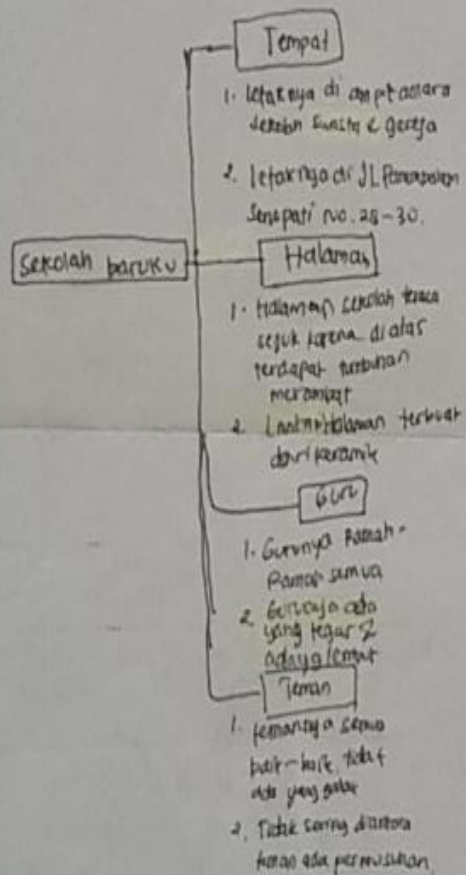 Tempat
1. letaknya di antara
sekolah & gereja
2. letaknya di JL Panembahan
Senopati no. 28-30.
Sekolah baruku
Halaman
1. Halaman sekolah terasa
sejuk karena di atas
terdapat tumbuhan
merambat
2. Lantai Halaman terbuat
dari keramik
Guru
1. Gurunya Ramah-
Ramah semua
2. Gurunya ada
yang tegas &
ada yg lemot
Teman
1. temannya semua
baik-baik, tidak
ada yang galak
2. Tidak sering diantara
teman ada permusuhan.